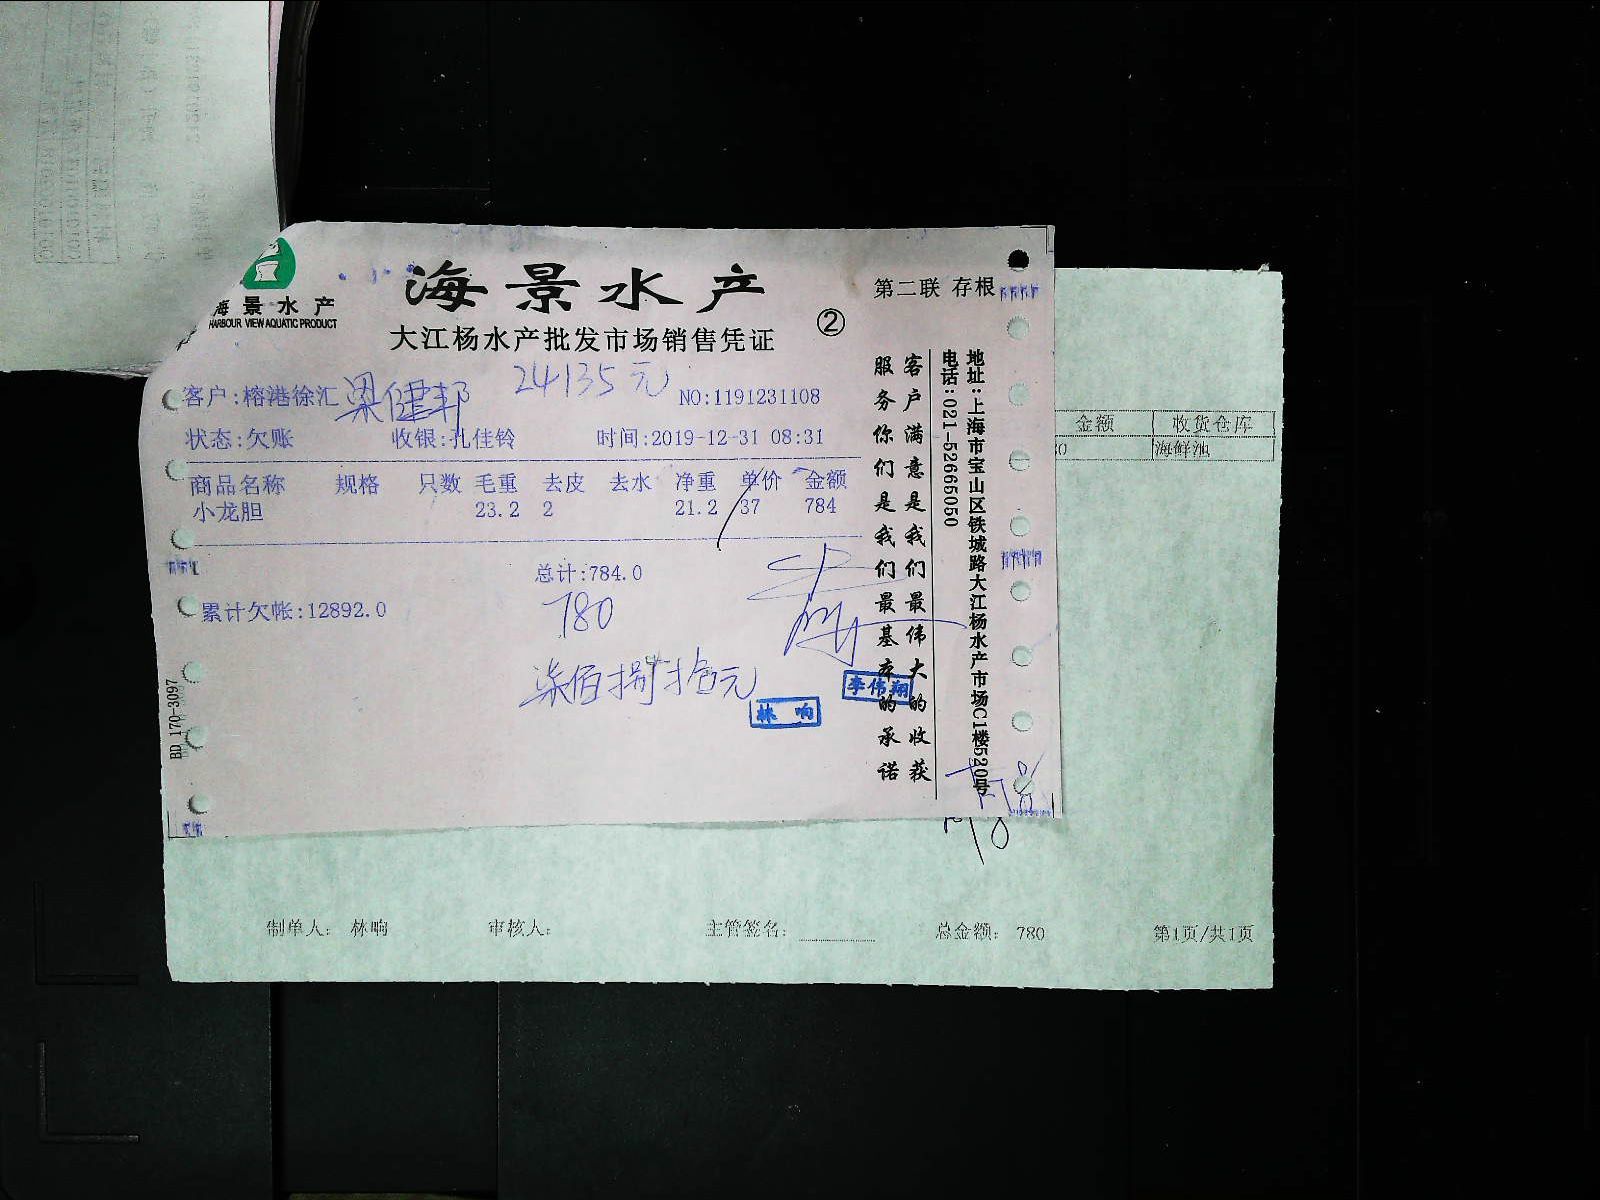 海景水产
HARBOUR VIEW AQUATIC PRODUCT
海景水产
大江杨水产批发市场销售凭证
②
第二联 存根
24135元
客户:榕港徐汇 梁健邦
NO:1191231108
状态:欠账 收银:孔佳铃 时间:2019-12-31 08:31
商品名称 规格 只数 毛重 去皮 去水 净重 单价 金额
小龙胆 23.2 2 21.2 37 784
总计:784.0
780
累计欠帐:12892.0
柒佰捌拾元
林响
李伟翔
客户满意是我们最伟大的收获
服务你们是我们最基本的承诺
地址:上海市宝山区铁城路大江杨水产市场C1楼520号
电话:021-52665050
BD 170-3097
金额 收货仓库
海鲜池
制单人: 林响 审核人: 主管签名: 总金额: 780 第1页/共1页